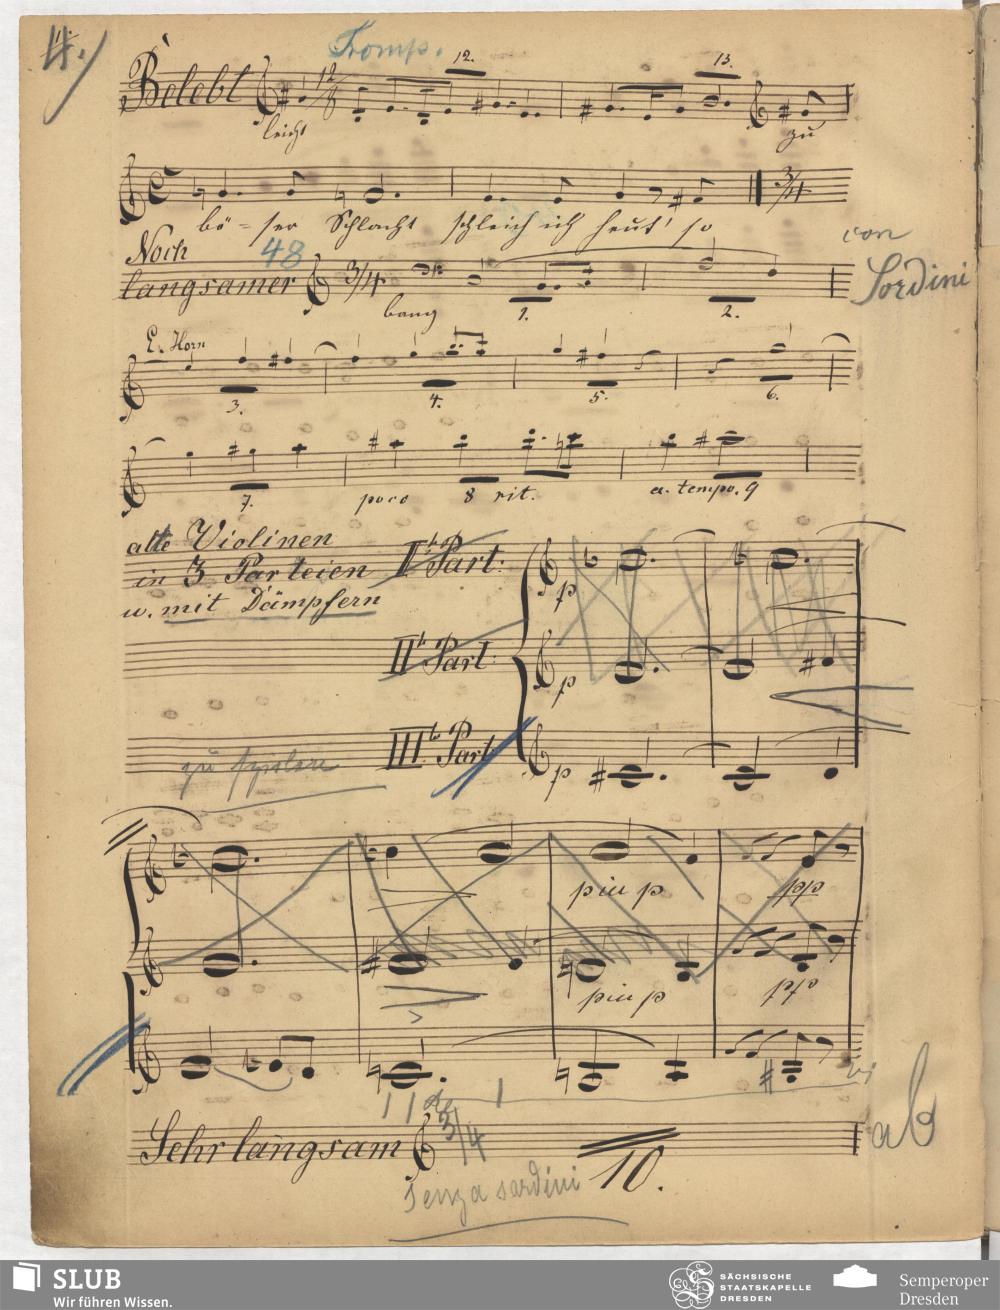 4.)
Tromp.
12. 13.
Belebt 12/8
leicht zu
C 3/4
bö = ser Schlacht schleich ich heut' so
Noch 48 con
langsamer 3/4 Sordini
bang 1. 2.
E. Horn
3. 4. 5. 6.
7. poco 8 rit. a. tempo. 9
alle Violinen
in 3 Parteien I.te Part:
u. mit Dämpfern
p
II.te Part:
p
zu spielen III.te Part:
p
piu p pp
piu p pp
>
Sehr langsam 3/4 10. ab
senza sordini
SLUB
Wir führen Wissen.
SÄCHSISCHE
STAATSKAPELLE
DRESDEN
Semperoper
Dresden